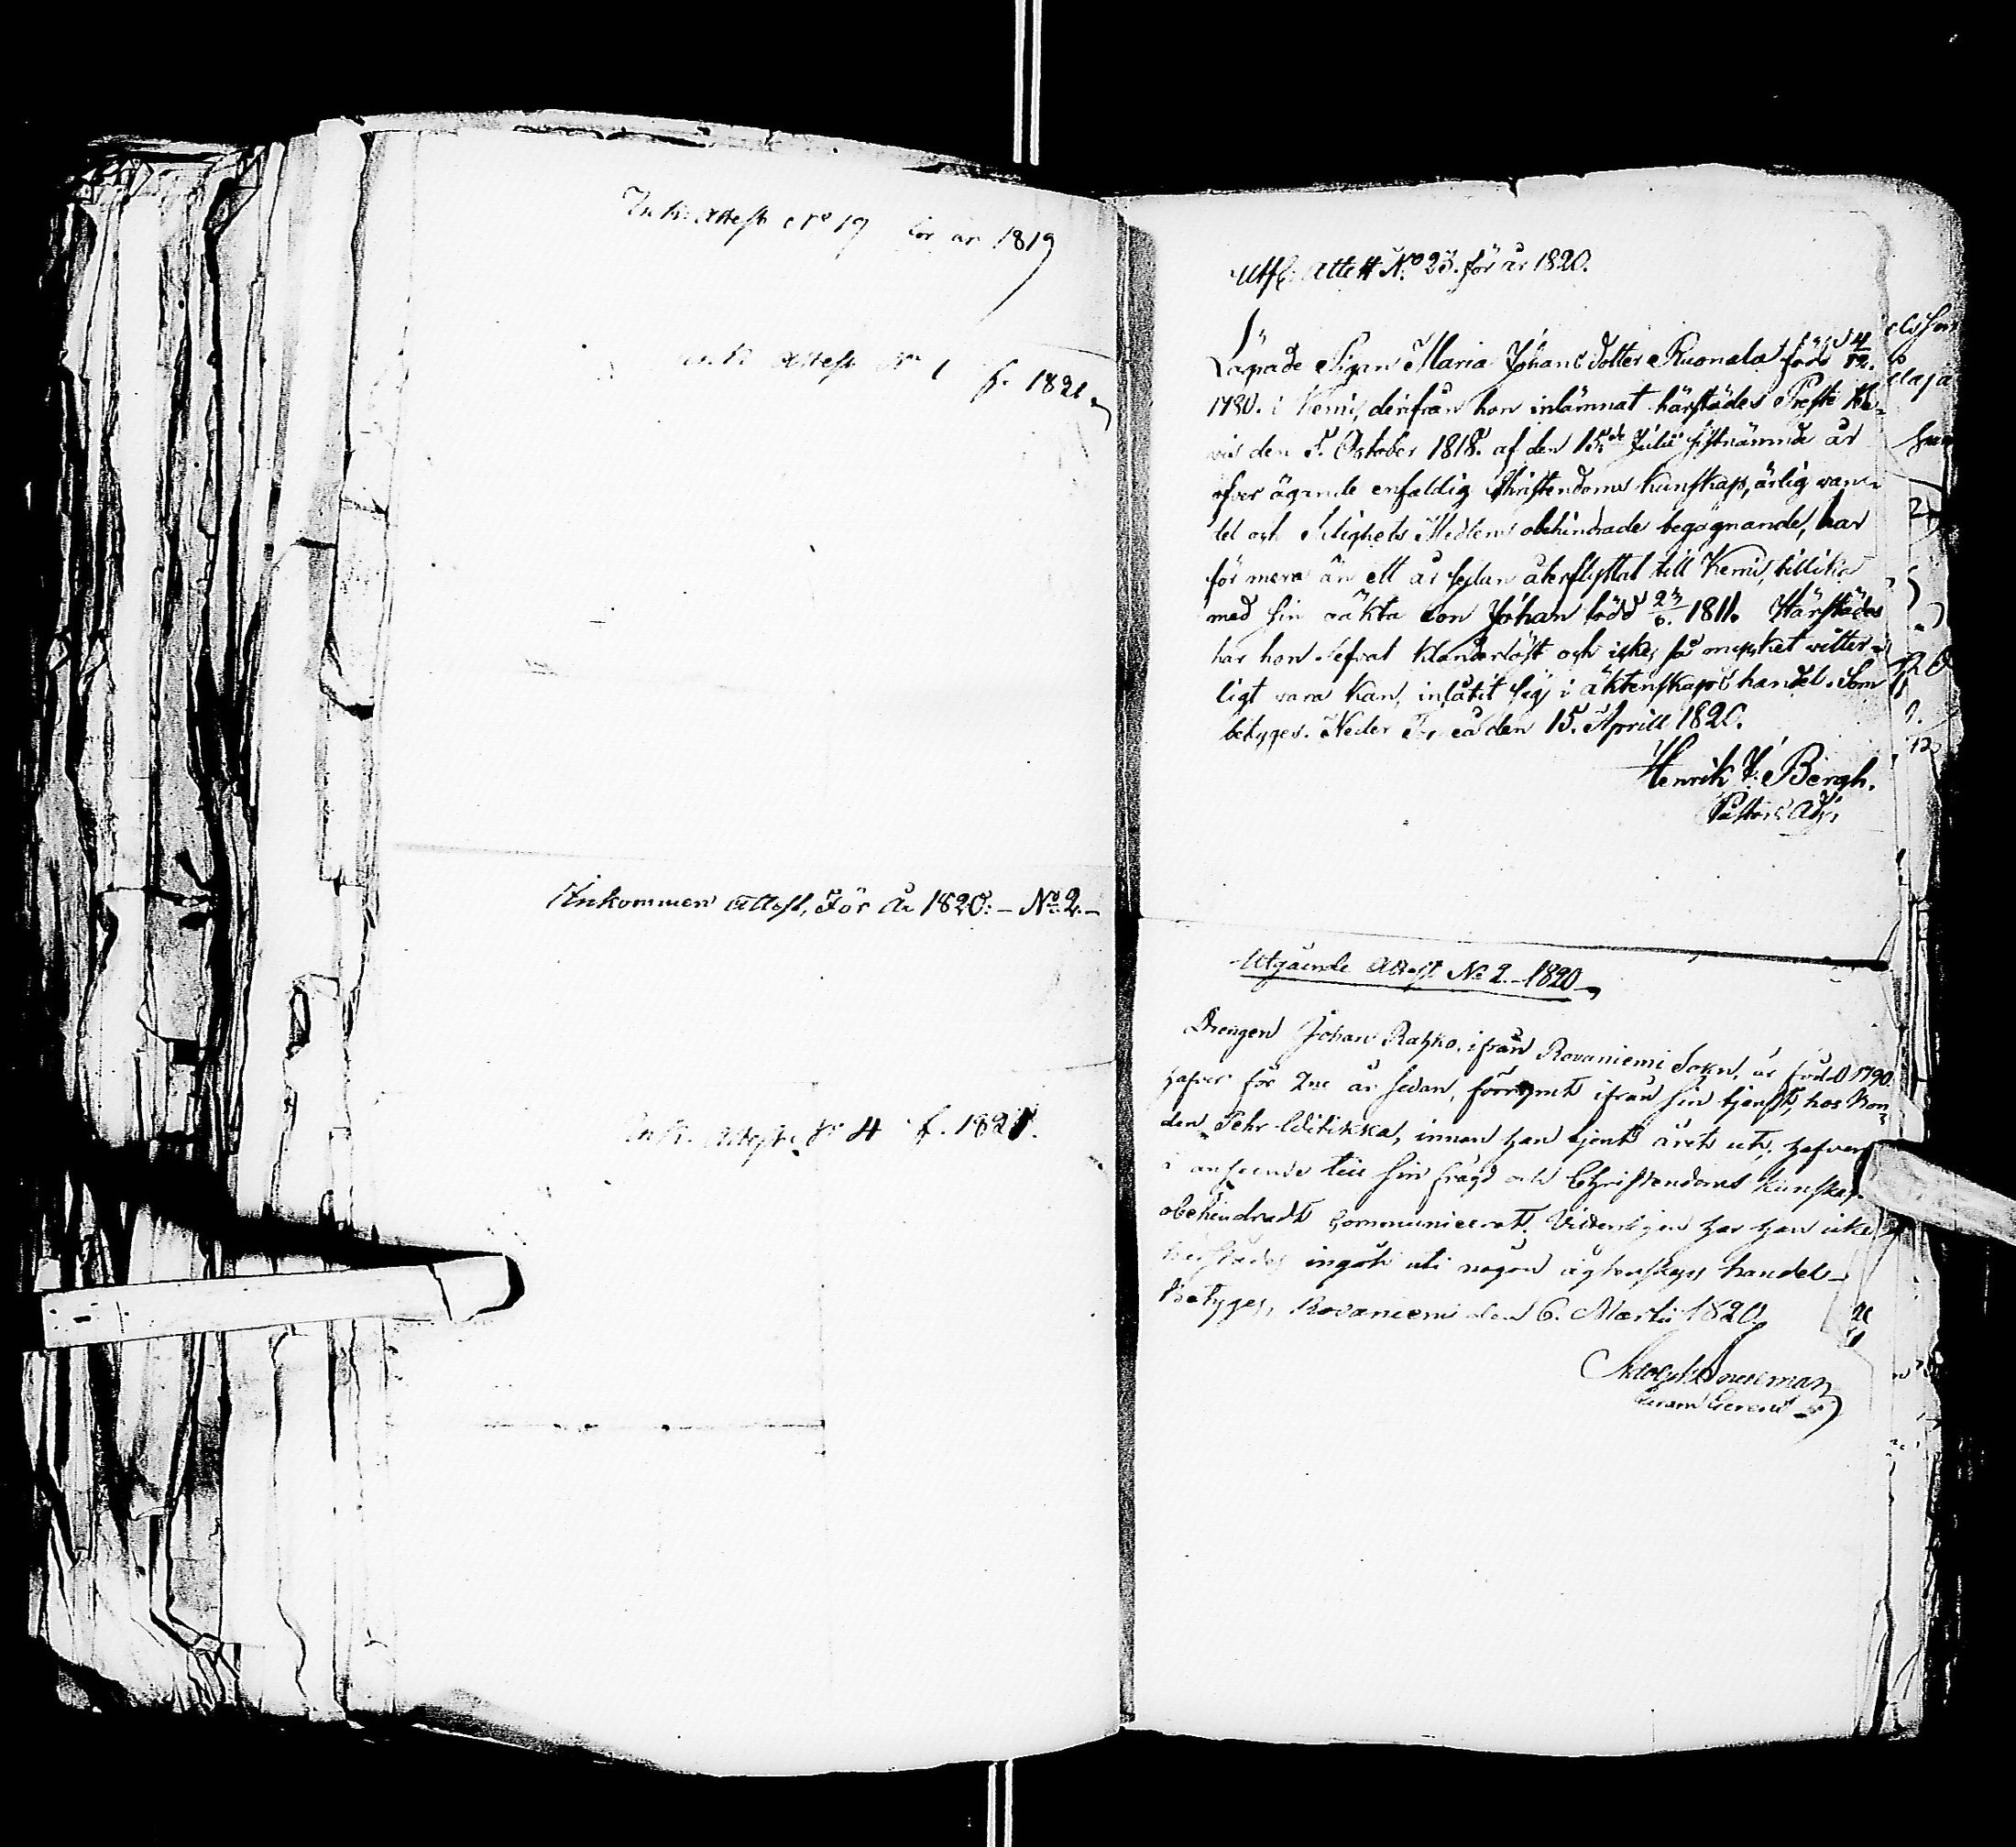 Ink. Attest No 19 för år 1819
Ink. Attest No 1 f. 1821
Inkommen Attest, För År 1820. – No 2. –
Ink. Attest No 4 f. 1821.
Utfl. Attest No 23. för år 1820.
Lägrade Pigan Maria Johans dotter Ruonala född 4/12.
1780. i Kemi, derifrån hon inlämnat härstädes Preste Be-
vis den 5. October 1818. af den 15de Julii sistnämnde år
öfver ägande enfaldig Christendoms Kunskap, ärlig van-
del och Salighets Medlens obehindrade begagnande, har
för mera än ett år sedan återflyttat till Kemi, tillika
med sin oäkta Son Johan född 23/6. 1811. Härstädes
har hon lefvat klanderlöst och icke, så mycket vitter-
ligt vara kan, inlåtit sig i äktenskaps handel. Som
betyges. Neder den 15. Aprill 1820.
Henrik J. Bergh.
Pastors Adj.
Utgående Attest No 2. – 1820
Drengen Johan Ratzko, ifrån Rovaniemi Sokn, är född 1790
hafver för 2ne år sedan, förrymt ifrån sin tjenst, hos Bon-
den Pehr Viitikka, innan han tjent året ut, hafver
i anseende till sin frägd och Christendoms Kunskap
obehindradt communicerat, Vitterligen har han icke
härstädes ingåt uti någon ägtenskaps handel –
Betyges, Rovaniemi den 6. Martii 1820.